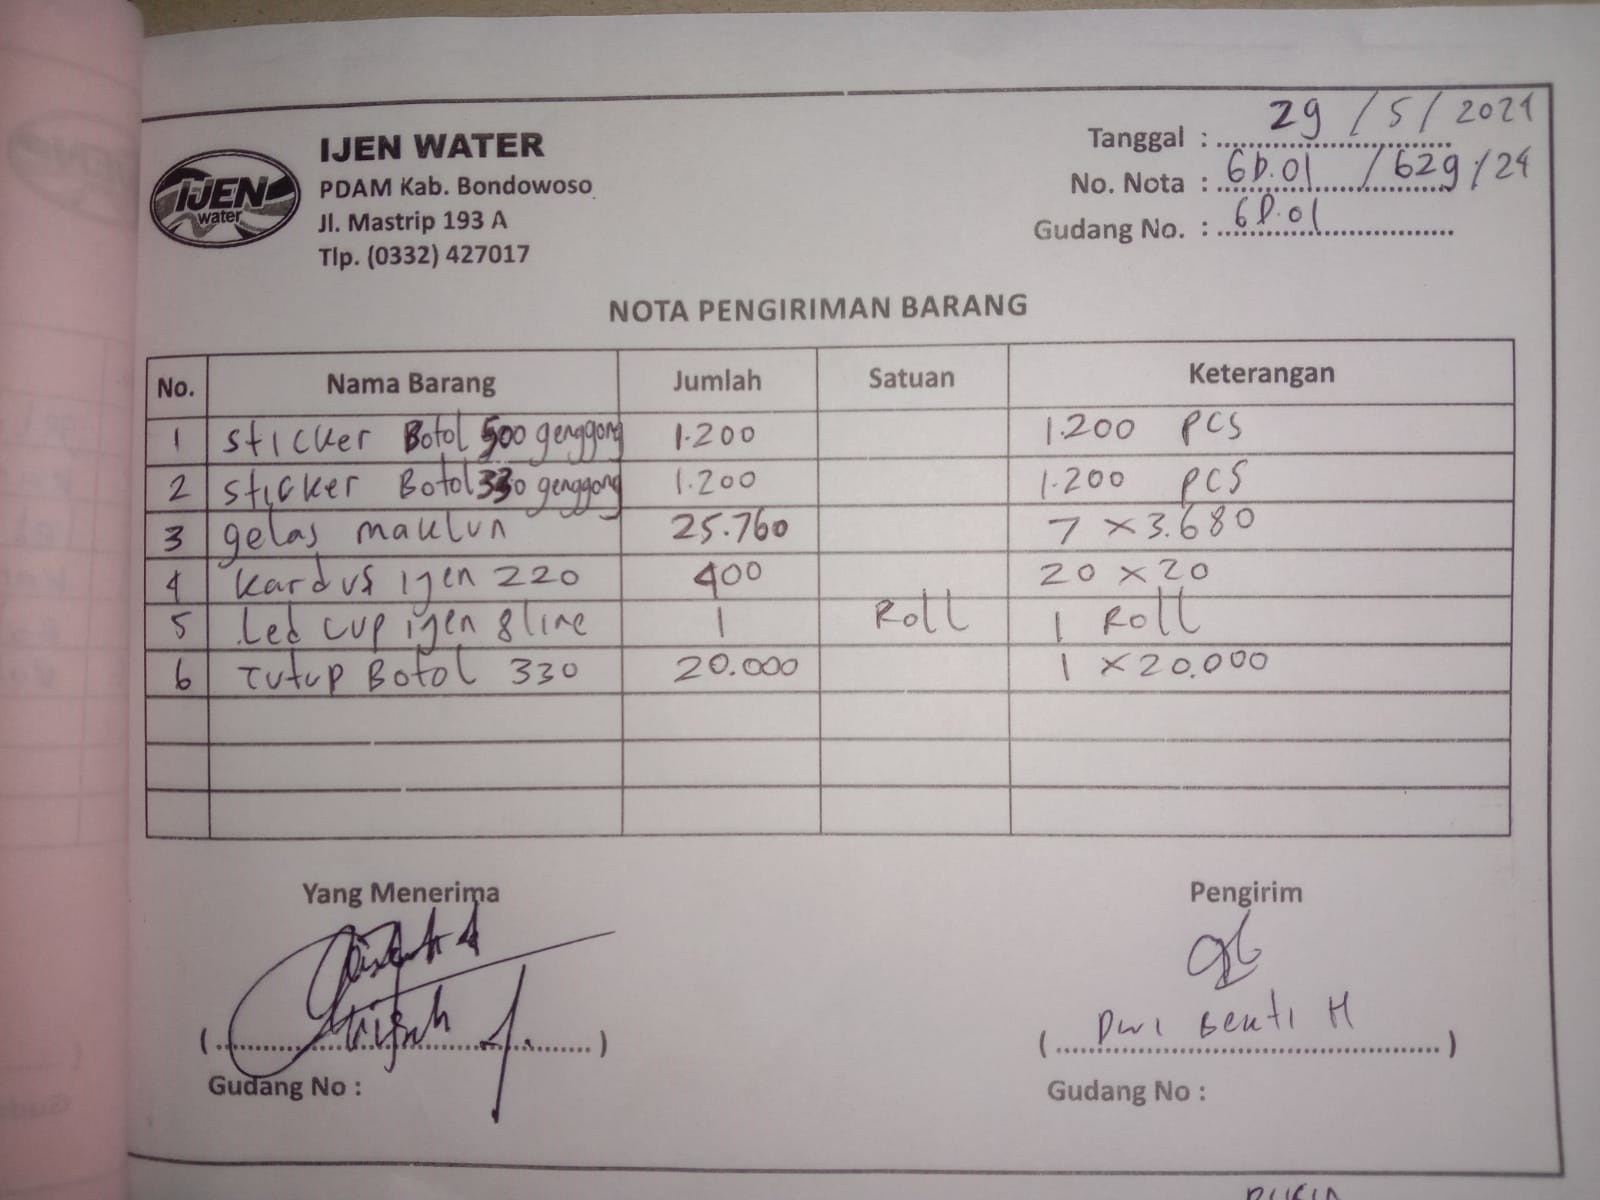 IJEN
water
IJEN WATER
PDAM Kab. Bondowoso
Jl. Mastrip 193 A
Tlp. (0332) 427017
Tanggal : 29 / 5 / 2021
No. Nota : GD.01 / 629 / 24
Gudang No. : GD.01
NOTA PENGIRIMAN BARANG
No. Nama Barang Jumlah Satuan Keterangan
1 sticker Botol 500 genggong 1.200 1.200 PCS
2 sticker Botol 330 genggong 1.200 1.200 PCS
3 gelas maklun 25.760 7 x 3.680
4 kardus ijen 220 400 20 x 20
5 Led cup ijen 8 line 1 Roll 1 Roll
6 Tutup Botol 330 20.000 1 x 20.000
Yang Menerima Pengirim
(....................) ( Dwi H )
Gudang No : Gudang No :